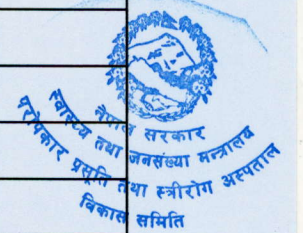 नेपाल सरकार
स्वास्थ्य तथा जनसंख्या मन्त्रालय
परोपकार प्रसूति तथा स्त्रीरोग अस्पताल
विकास समिति